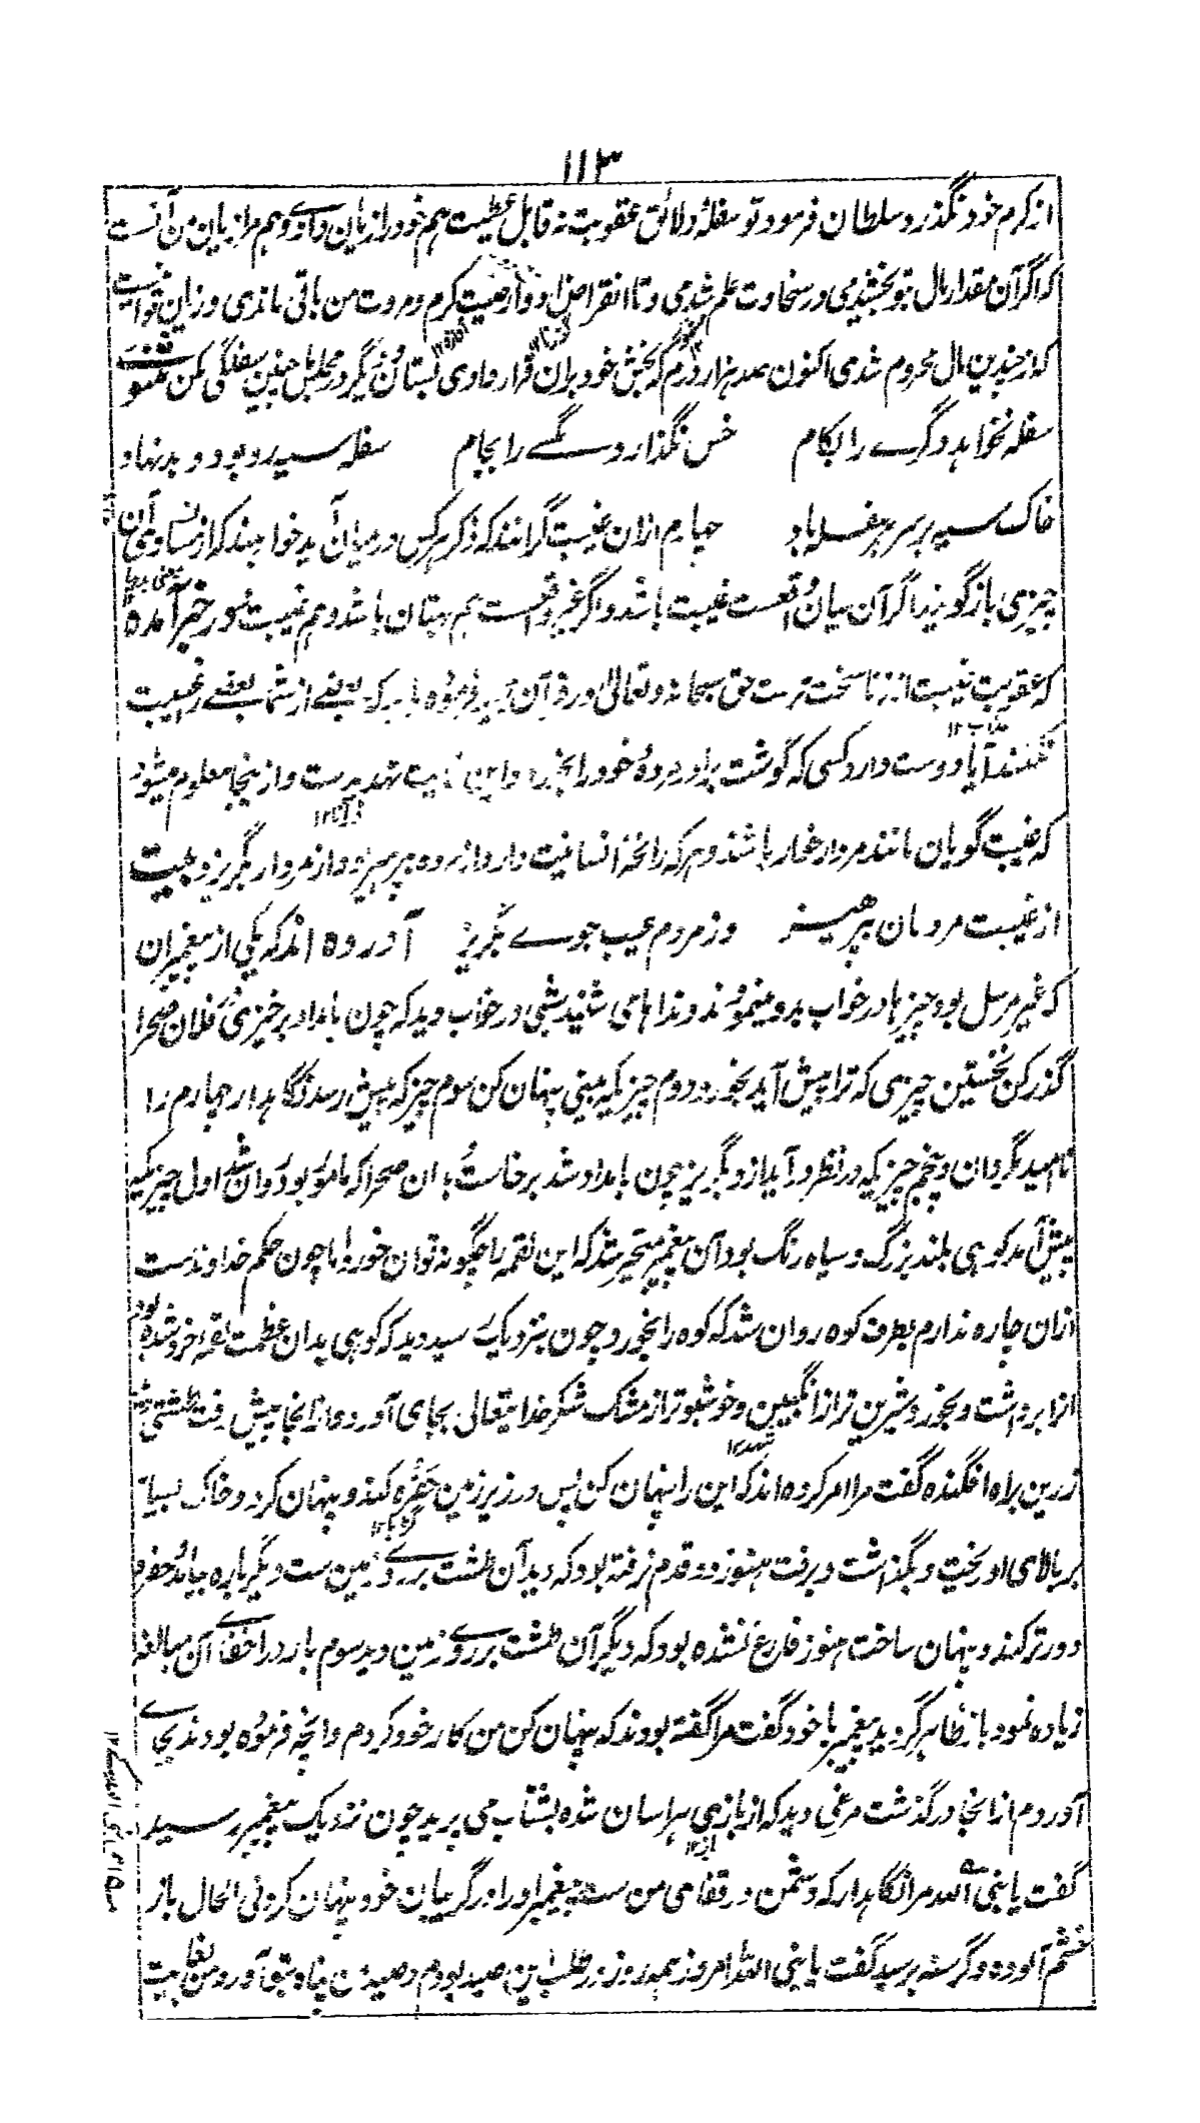 ۱۱۳
از کرم خود نگذرد سلطان فرمود تو سفلهٔ و لائق عقوبت نه قابل عطیت هم خود را زیان دادے و هم مرا زیان من آنست
که اگر آن مقدار مال بتو بخشیدمی در سخاوت علم شدمی و تا انقراض ادوار صیت کرم و مروت من باقی ماندی و زیان تو آنست
که از چندین مال محروم شدی اکنون صد هزار درم که بخش خود بران قرار دادی بستان و دیگر در محافل چنین سفلگی مکن مثنوی
سفله نخواهد دگرے را بکام خس نگذارد مگسے را بجام سفله سیه رو بود و بد نهاد
خاک سیه بر سر هر سفله باد چهارم ازان غیبت گرانند که ذکر هر کس در میان آید خواهند که از مساوی آن
چیزی باز گویند اگر آن بیان واقعست غیبت باشد و اگر غیر واقعست هم بهتان باشد و هم غیبت و در خبر آمده
که عقوبت غیبت از زنا سخت ترست حق سبحانه و تعالی در قرآن مجید فرموده باید که بعضے از شما بعضے را غیبت
نکنند آیا دوست دارد کسی که گوشت برادر مردهٔ خود را بخورد و این غایت تهدیدست و ازینجا معلوم میشود
که غیبت گویان مانند مردار خوار باشند و هر که رائحهٔ انسانیت دارد از مرده بپرهیزد و از مردار بگریزد بیت
از غیبت مردمان بپرهیز وز مردم عیب جوے بگریز آورده اند که یکی از پیغمبران
که غیر مرسل بود چیزها در خواب بدو مینمودند و نداها می شنید شبی در خواب دید که چون بامداد برخیزی بفلان صحرا
گذر کن نخستین چیزی که ترا پیش آید بخور و دوم چیزیکه بینی پنهان کن سوم چیز که پیش رسد نگاهدار چهارم را
نا امید مگردان و پنجم چیزیکه در نظر در آید ازو بگریز چون بامداد شد برخاست بدان صحرا که مامور بود روان شد اول چیزیکه
پیش آمد کوهی بلند بزرگ و سیاه رنگ بود آن پیغمبر متحیر شد که این لقمه را چگونه توان خورد اما چون حکم خداوندست
ازان چاره ندارم بطرف کوه روان شد که کوه را بخورد چون نزدیک رسید دید که کوهی بدان عظمت لقمهٔ خرد شده بود
آنرا برداشت و بخورد شیرین تر از انگبین و خوشبوتر از مشک شکر خدایتعالی بجای آورد و از آنجا پیش رفت طشتی
زرین براه افگنده گفت مرا امر کرده اند که این را پنهان کن پس در زیر زمین حفره کند و پنهان کرد و خاک بسیار
بر بالای او ریخت و بگذاشت و برفت هنوز دو قدم نرفته بود که دید آن طشت بر روے زمین ست دیگر باره بیامد حفره
دورتر کند و پنهان ساخت هنوز فارغ نشده بود که دیگر آن طشت بر روے زمین دید سوم بار در اخفاے آن مبالغه
زیاده نمود باز ظاهر گردید پیغمبر با خود گفت مرا گفته بودند که پنهان کن من کار خود کردم و آنچه فرموده بودند بجاے
آوردم از آنجا درگذشت مرغی دید که از بازی هراسان شده بشتاب می پرید چون نزدیک پیغمبر رسید
گفت یا نبی الله مرا نگاهدار که دشمن در قفای من ست پیغمبر او را در گریبان خود پنهان کرد فی الحال باز
خشم آلوده و گرسنه برسید گفت یا نبی الله امروز همه روز در طلب این صید بودم و صید من پناه بتو آورد و من بغایت